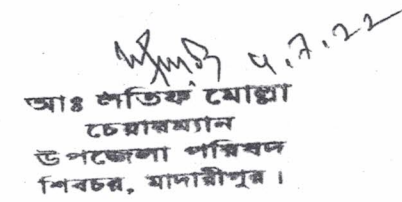 ৫.৭.২২
আঃ লতিফ মোল্লা
চেয়ারম্যান
উপজেলা পরিষদ
শিবচর, মাদারীপুর।